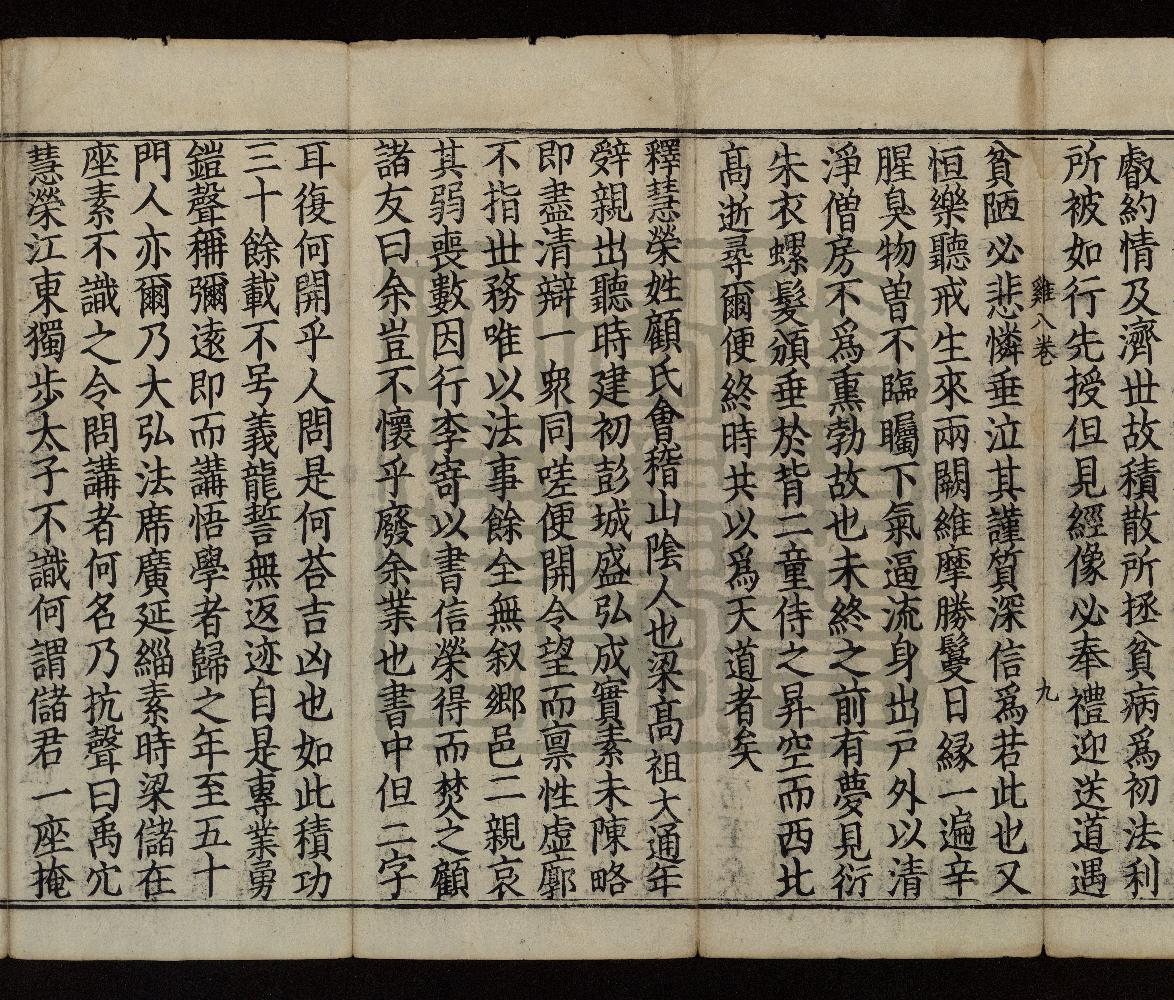 叡約情及濟世故積散所拯貧病爲初法利
所被如行先授但見經像必奉禮迎送道遇
雞八卷 九
貧陋必悲憐垂泣其謹質深信爲若此也又
恒樂聽戒生來兩闕維摩勝鬘日緣一遍辛
腥臭物曽不臨矚下氣逼流身出戶外以清
淨僧房不爲熏勃故也未終之前有夢見衍
朱衣螺髮頒垂於背二童侍之昇空而西北
髙逝尋爾便終時共以爲天道者矣
釋慧榮姓顧氏會稽山陰人也梁髙祖大通年
辤親出聽時建初彭城盛弘成實素未陳略
即盡清辯一衆同嗟便開令望而禀性虚廓
不指世務唯以法事餘全無叙鄉邑二親哀
其弱喪數因行李寄以書信榮得而焚之顧
諸友曰余豈不懷乎廢余業也書中但二字
耳復何開乎人問是何荅吉凶也如此積功
三十餘載不号義龍誓無返迹自是專業勇
鎧聲稱彌逺即而講悟學者歸之年至五十
門人亦爾乃大弘法席廣延緇素時梁儲在
座素不識之令問講者何名乃抗聲曰禹穴
慧榮江東獨步太子不識何謂儲君一座掩